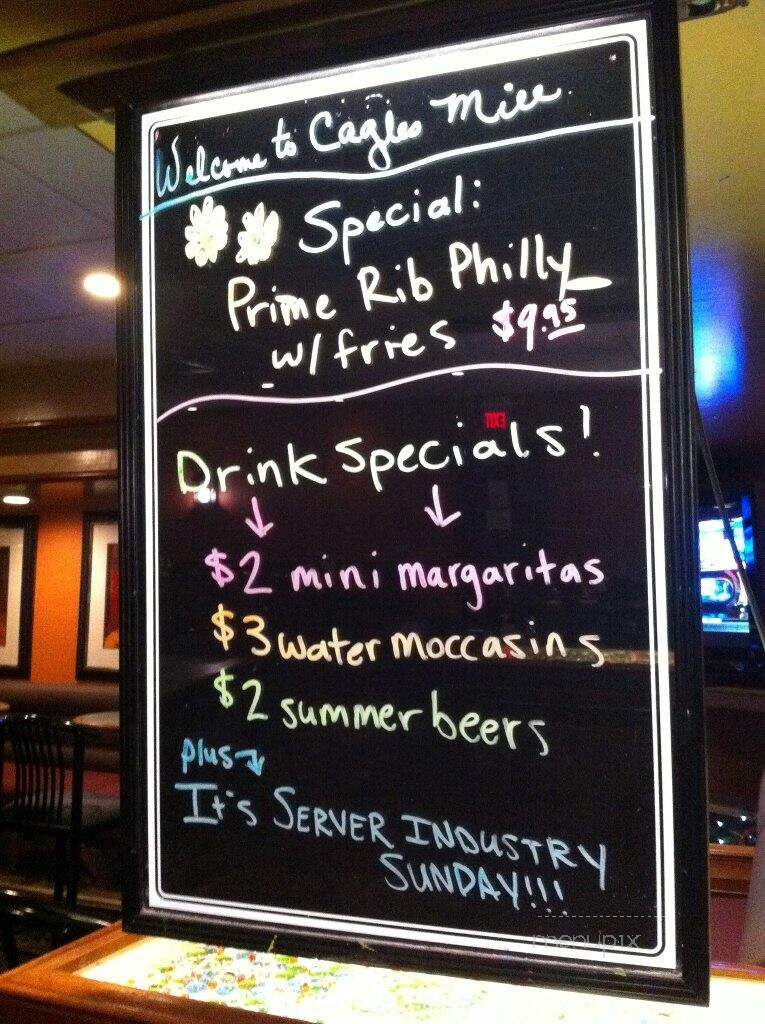 Welcome to Cagles Mill
Special:
Prime Rib Philly
w/fries $9.95
EXIT
Drink Specials!
$2 mini margaritas
$3 water moccasins
$2 summer beers
plus
It's SERVER INDUSTRY
SUNDAY!!!
menupix